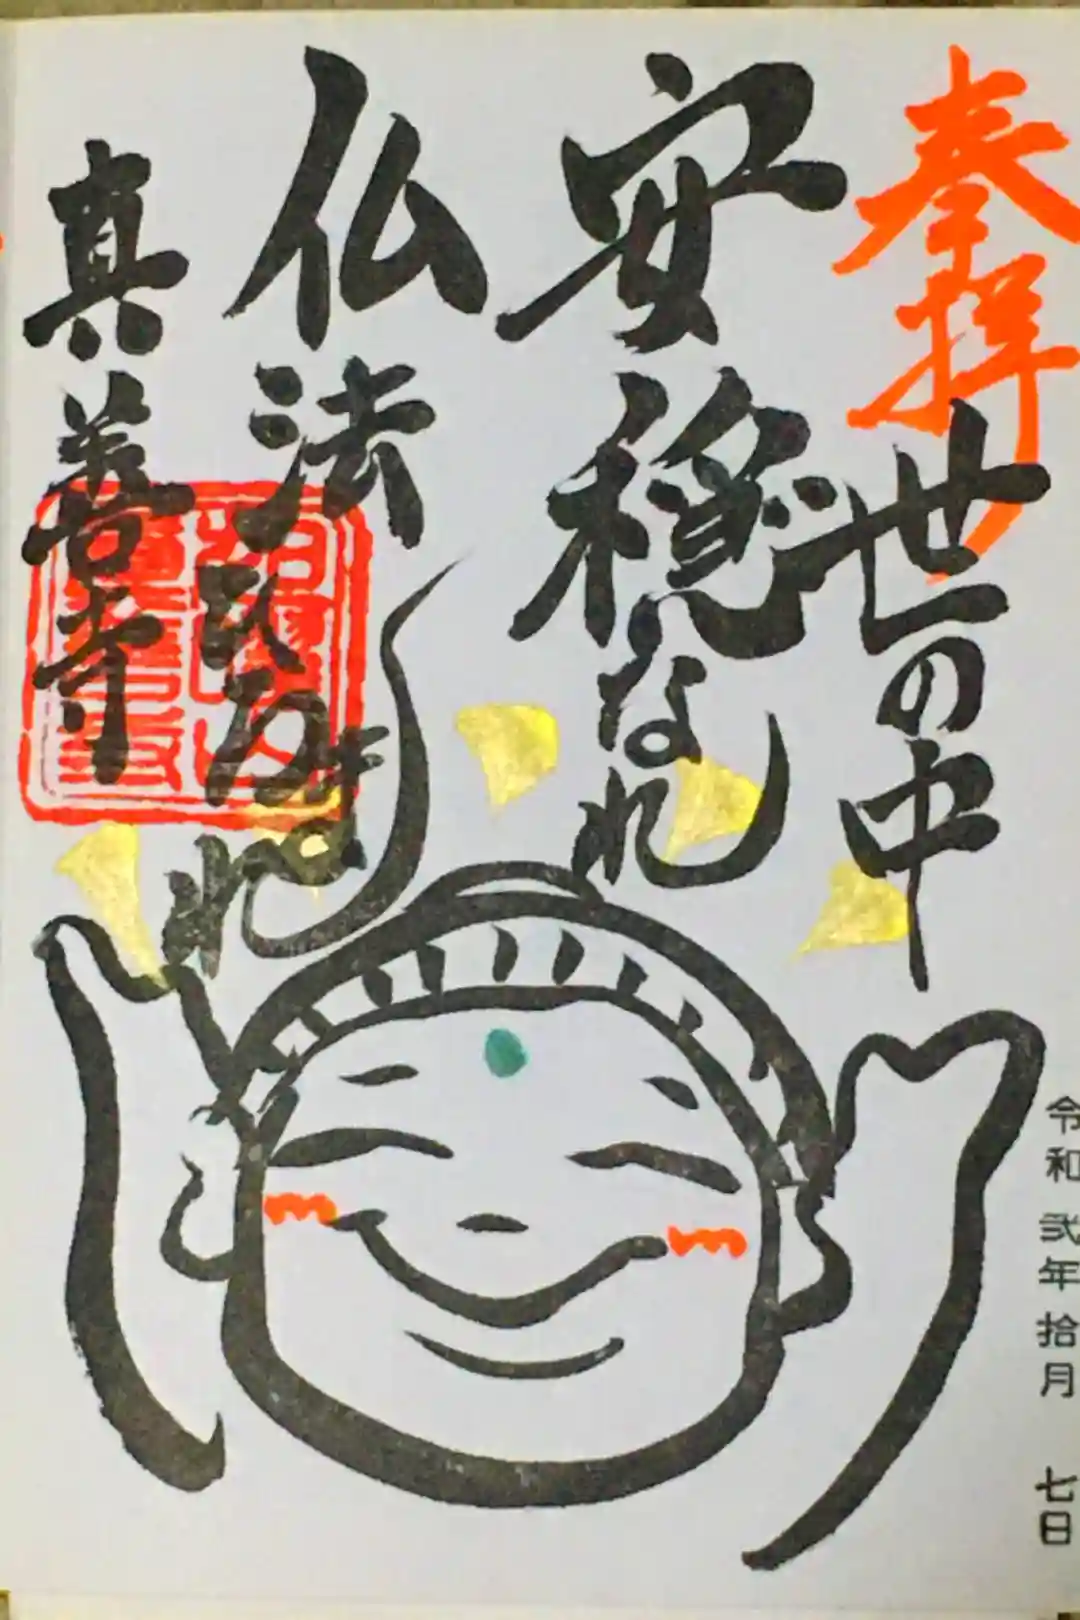 奉拝
世の中
安穏なれ
仏法ひろまれ
真善寺
令和 弐年 拾月 七日